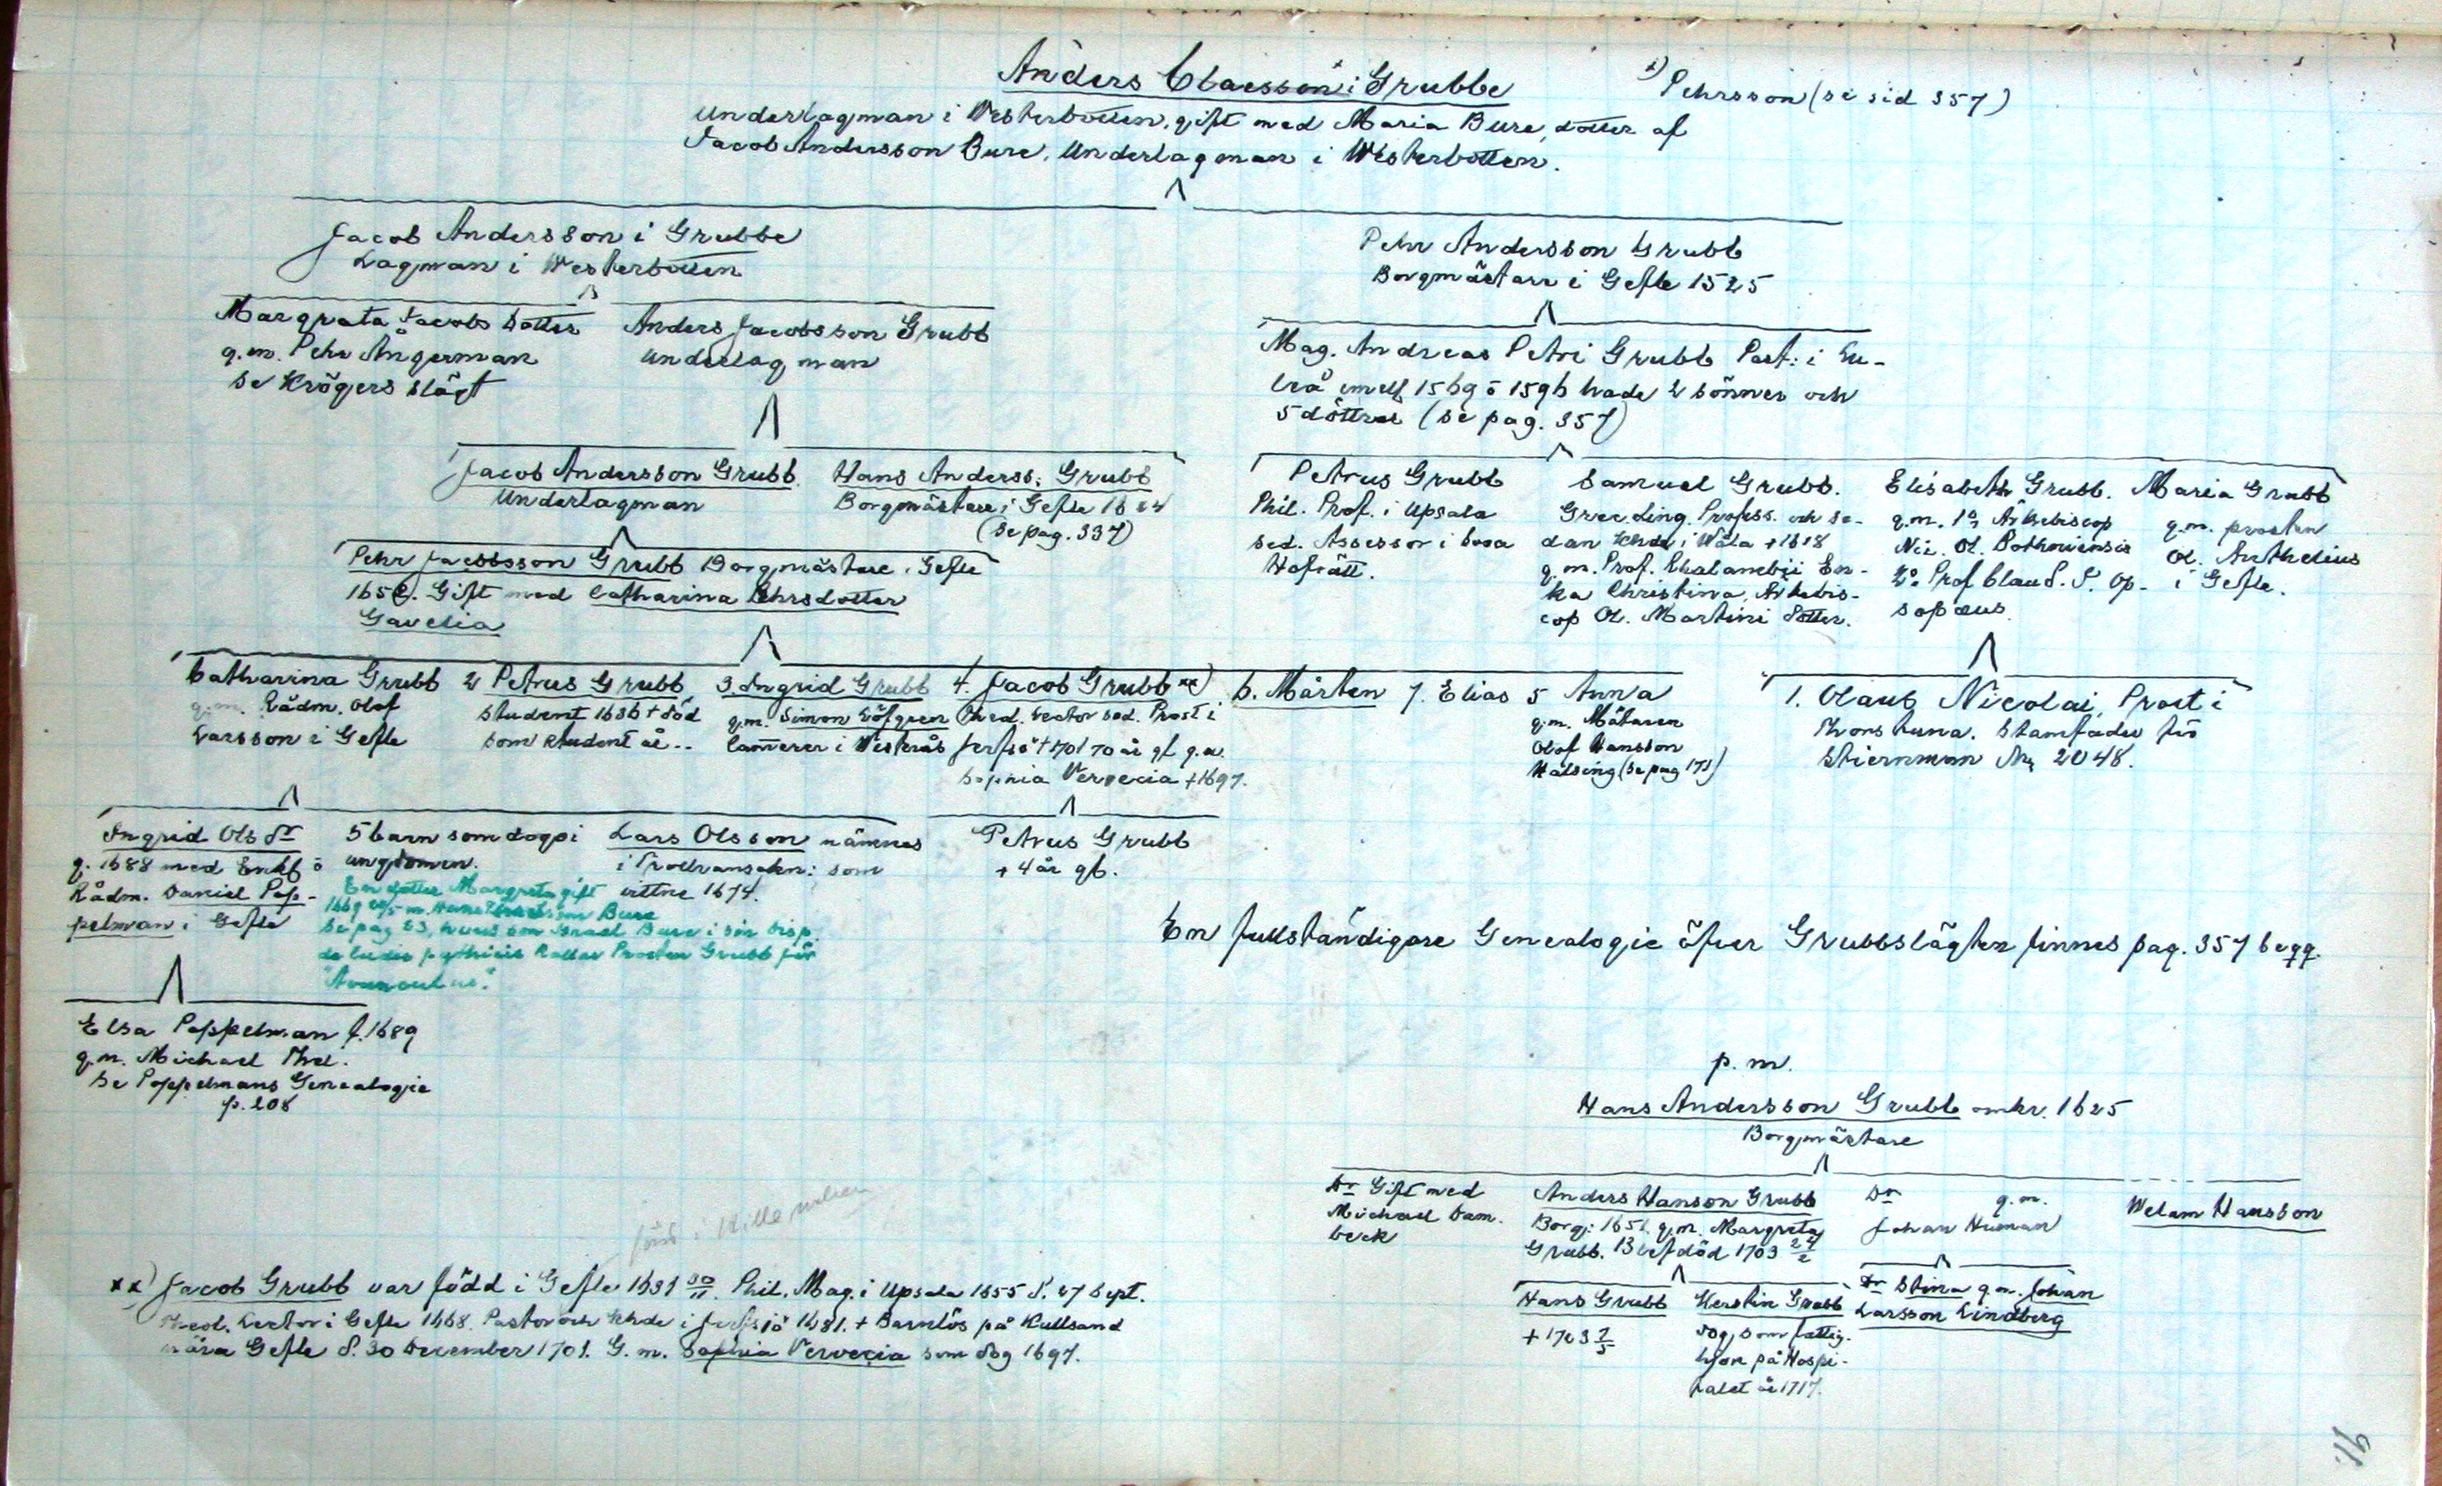 Anders Claesson i Grubbe
x) Pehrsson (se sid 357)
Underlagman i Westerbotten, gift med Maria Bure, dotter af
Jacob Andersson Bure, Underlagman i Westerbotten.
Jacob Andersson i Grubbe
Lagman i Westerbotten
Pehr Andersson Grubb
Borgmästare i Gefle 1525
Margreta Jacobs dotter
g.m. Pehr Ångerman
se Krögers slägt
Anders Jacobsson Grubb
underlagman
Mag. Andreas Petri Grubb Past: i Lu-
leå 1569 o 1596 hade 2 sönner och
5 döttrar (se pag. 357)
Jacob Andersson Grubb
Underlagman
Hans Anderss: Grubb
Borgmästare i Gefle 1624
(se pag. 337)
Petrus Grubb
Phil. Prof. i Upsala
sed. Assessor i Svea
Hofrätt.
Samuel Grubb.
Græc. Ling. Profess. och se-
dan Khde i Wåla +1618
g.m. Prof. En-
ka Christina, Ärkebis-
cop Ol. Martini dotter.
Elisabeth Grubb.
g.m. 1o Ärkebiscop
Nic. Ol. Bothniensis
2o Prof Claud. J. Op-
sopæus
Maria Grubb
g.m. prosten
Ol. Anthelius
i Gefle.
Pehr Jacobsson Grubb Borgmästare i Gefle
165. Gift med Catharina Pehrsdotter
Gavelia
Catharina Grubb
g.m. Rådm. Olof
Larsson i Gefle
2 Petrus Grubb
student 1636 + död
som student år ..
3. Ingrid Grubb
g.m. Simon Löfgren
Camerer i Westerås
4. Jacob Grubb xx)
Theol. Lector sed. Prost i
Jerfsö + 1701 70 år gl g.m.
Sophia Vervecia +1697.
6. Mårten
7. Elias
5 Anna
g.m. Mätaren
Olof Hansson
Hälsing (se pag 171)
1. Olaus Nicolai, Prost i
Thorstuna. Stamfader för
Stiernman No 2048.
Ingrid Ols dr
g. 1688 med Enkl o
Rådm. Daniel Pop-
pelman i Gefle
5 barn som dogo i
ungdomen.
En dotter Margreta gift
1669 m. Hans Bure
se pag 23, hvars son Israel Bure i sin disp.
de ludis pythiis kallar Prosten Grubb för
"Avunculus".
Lars Olsson nämnes
i Trollransakn: som
vittne 1674.
Petrus Grubb
+ 4 år gl.
En fullständigare Genealogie öfver Grubbslägten finnes pag. 357 seqq.
Elsa Poppelman f. 1689
g.m. Michael Thel.
se Poppelmans Genealogie
p. 208
p. m.
Hans Andersson Grubb omkr. 1625
Borgmästare
Dr Gift med
Michael Dam-
beck
Anders Hanson Grubb
Borg: 1651. g.m. Margreta
Grubb. Blef död 1703 24/2
Dr g.m.
Johan Human
Welam Hansson
Hans Grubb
+ 1703 7/5
Kerstin Grubb
dog som fattig-
hjon på Hospi-
talet år 1717.
Dr Stina g.m. Johan
Larsson Lindberg
född i Hille
xx) Jacob Grubb var född i Gefle 1631 30/11. Phil. Mag. i Upsala 1655 d. 27 Sept.
Theol. Lector i Gefle 1668. Pastor och Khde i Jerfsiö 1681. + Barnlös på Kullsand
nära Gefle d. 30 December 1701. G. m. Sophia Vervecia som dog 1697.
91.